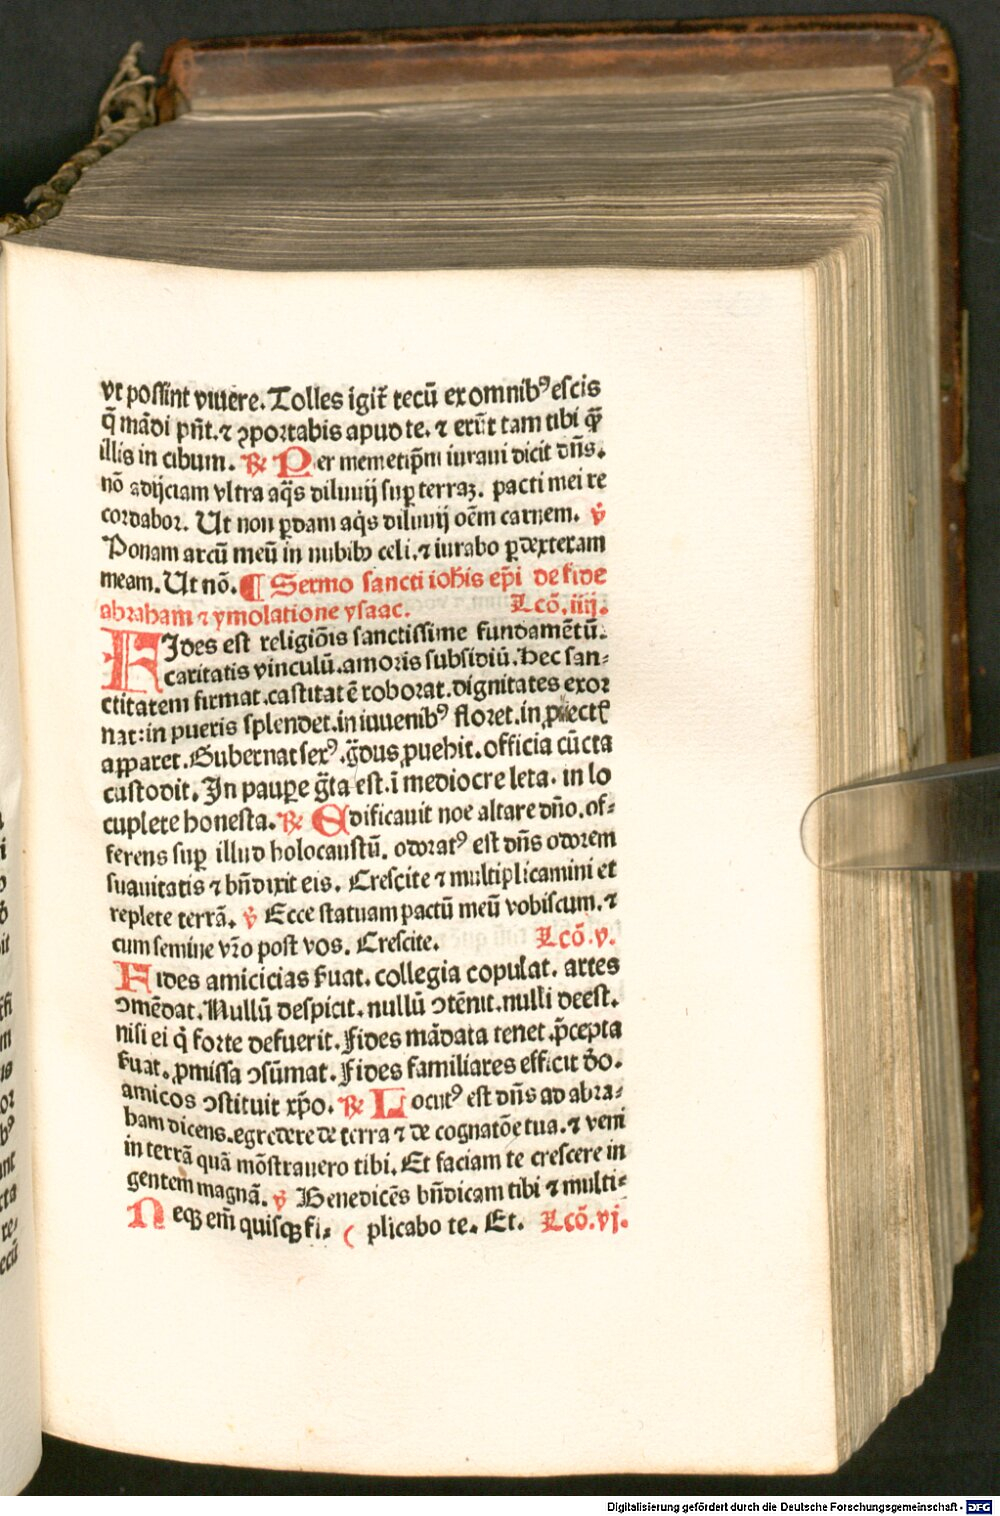 vt possint viuere. Tolles igit᷑ tecū ex omnibꝰ escis
q̄ mādi pn̄t. ⁊ ꝯportabis apud te. ⁊ erūt tam tibi qᷓꝫ
illis in cibum. ℟ Per memetip̄m iuraui dicit dn̄s.
nō adijciam vltra aq̄s diluuij suꝑ terraꝫ. pacti mei re
cordabor. Ut non ꝑdam aq̄s diluuij oēm carnem. ℣
Ponam arcū meū in nubibꝫ celi. ⁊ iurabo ꝑ dexteram
meam. Ut nō. ¶ Sermo sancti ioh̄is ep̄i de fide
abraham ⁊ ymolatione ysaac. Lcō. iiij.
FIdes est religiōis sanctissime fundamētū.
caritatis vinculū. amoris subsidiū. Hec san⸗
ctitatem firmat. castitatē roborat. dignitates exor
nat: in pueris splendet. in iuuenibꝰ floret. in ꝓuectꝭ
apparet. Gubernat serꝰ. g̃dus ꝓuehit. officia cūcta
custodit. In pauꝑe g̃ta est. ī mediocre leta. in lo
cuplete honesta. ℟ Edificauit noe altare dn̄o. of⸗
ferens suꝑ illud holocaustū. odoratꝰ est dn̄s odorem
suauitatis ⁊ bn̄dixit eis. Crescite ⁊ multiplicamini et
replete terrā. ℣ Ecce statuam pactū meū vobiscum. ⁊
cum semine vr̄o post vos. Crescite. Lcō. v.
Fides amicicias ẜuat. collegia copulat. artes
ꝯmēdat. Nullū despicit. nullū ꝯtēnit. nulli deest.
nisi ei q̇ forte defuerit. Fides mādata tenet. p̄cepta
ẜuat. ꝓmissa ꝯsūmat. Fides familiares efficit d̄o.
amicos ꝯstituit xp̄o. ℟ Locutꝰ est dn̄s ad abra⸗
ham dicens. egredere de terra ⁊ de cognatōe tua. ⁊ veni
in terrā quā mōstrauero tibi. Et faciam te crescere in
gentem magnā. ℣ Benedicēs bn̄dicam tibi ⁊ multi⸗
Neqꝫ em̄ quisqꝫ fi⸗ ( plicabo te. Et. Lcō. vj.
Digitalisierung gefördert durch die Deutsche Forschungsgemeinschaft - DFG